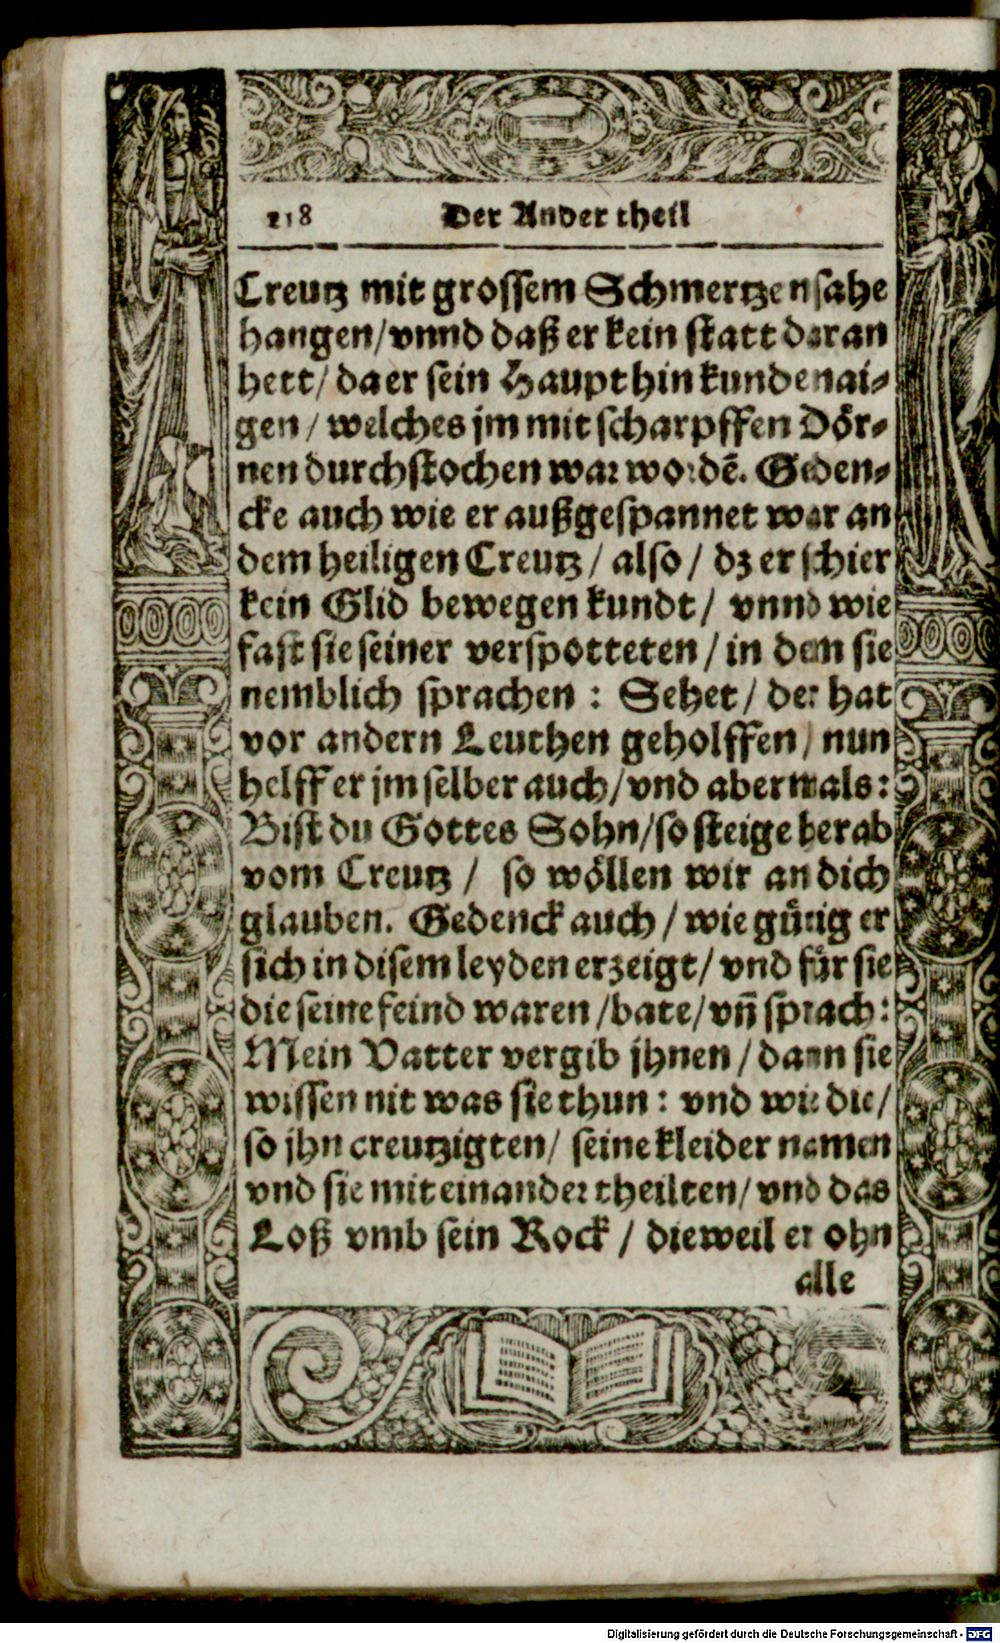 218 Der Ander theil
Creutz mit grossem Schmertzen sahe
hangen/vnnd daß er kein statt daran
hett/ da er sein Haupt hin kunde nai⸗
gen/ welches jm mit scharpffen Dör⸗
nen durchstochen war wordẽ. Geden⸗
cke auch wie er außgespannet war an
dem heiligen Creutz/ also/ dz er schier
kein Glid bewegen kundt/ vnnd wie
fast sie seiner verspotteten/ in dem sie
nemblich sprachen: Sehet/ der hat
vor andern Leuthen geholffen/ nun
helff er jm selber auch/vnd abermals:
Bist du Gottes Sohn/so steige herab
vom Creutz/ so wöllen wir an dich
glauben. Gedenck auch/ wie gütig er
sich in disem leyden erzeigt/ vnd für sie
die seine feind waren/bate/vñ sprach:
Mein Vatter vergib jhnen/ dann sie
wissen nit was sie thun: vnd wie die/
so jhn creutzigten/ seine kleider namen
vnd sie mit einander theilten/ vnd das
Loß vmb sein Rock/ dieweil er ohn
alle
Digitalisierung gefördert durch die Deutsche Forschungsgemeinschaft - DFG